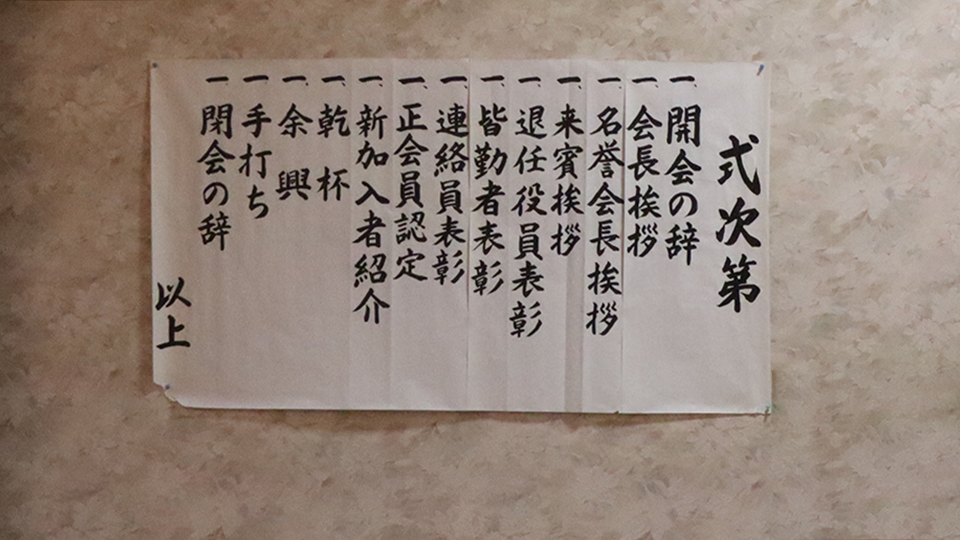 式次第
一、開会の辞
一、会長挨拶
一、名誉会長挨拶
一、来賓挨拶
一、退任役員表彰
一、皆勤者表彰
一、連絡員表彰
一、正会員認定
一、新加入者紹介
一、乾杯
一、余興
一、手打ち
一、閉会の辞
以上